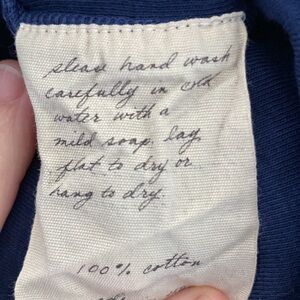 please hand wash
carefully in cold
water with a
mild soap. lay
flat to dry or
hang to dry.
100% cotton